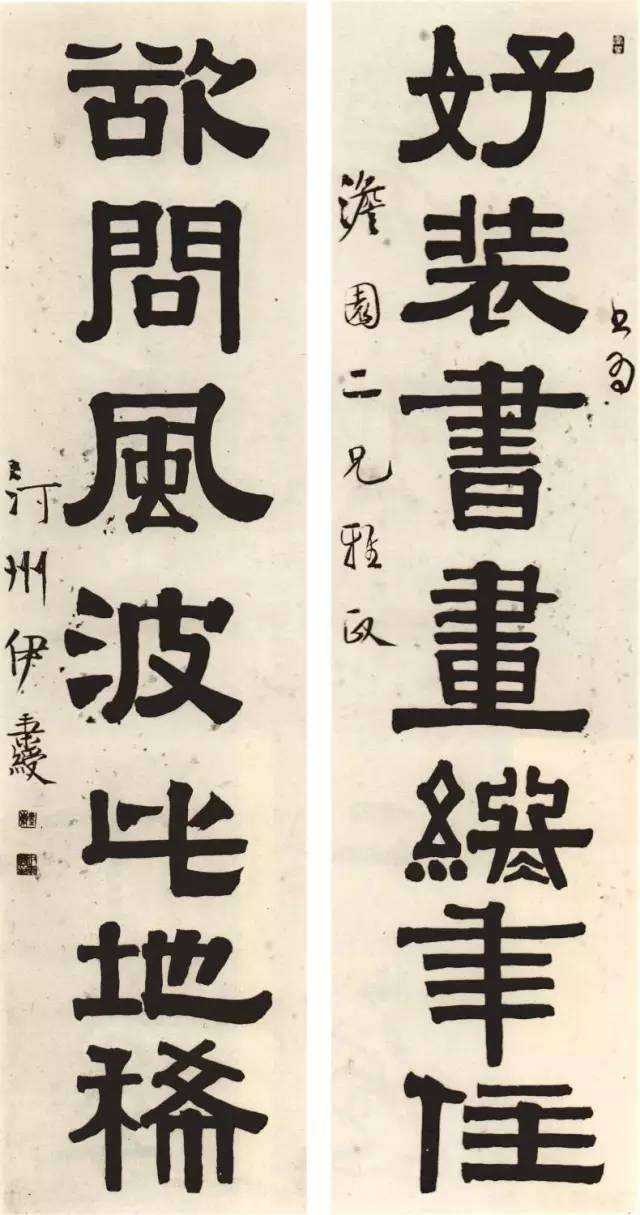 好装書畫終年住
書為
澹園二兄雅政
欲問風波此地稀
汀州伊秉綬